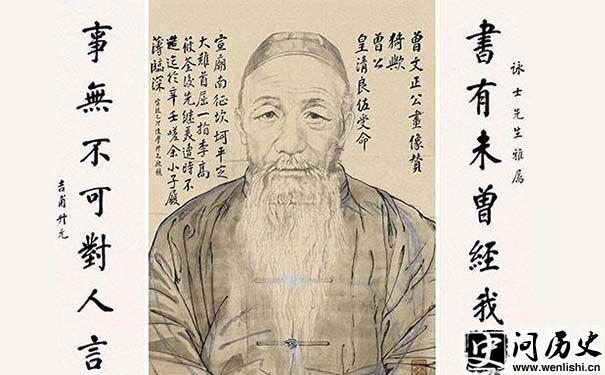 書有未曾經我
詠士先生雅屬
曾文正公畫像贊
猗歟
曾公
皇清良佐受命
宣廟南征坎坷平定
大難首屈一指李高
筱荃後先繼美遭時不
造迄於辛壬嗟余小子履
薄臨深
事無不可對人言
吉甫
史 问历史
www.wenlishi.cn